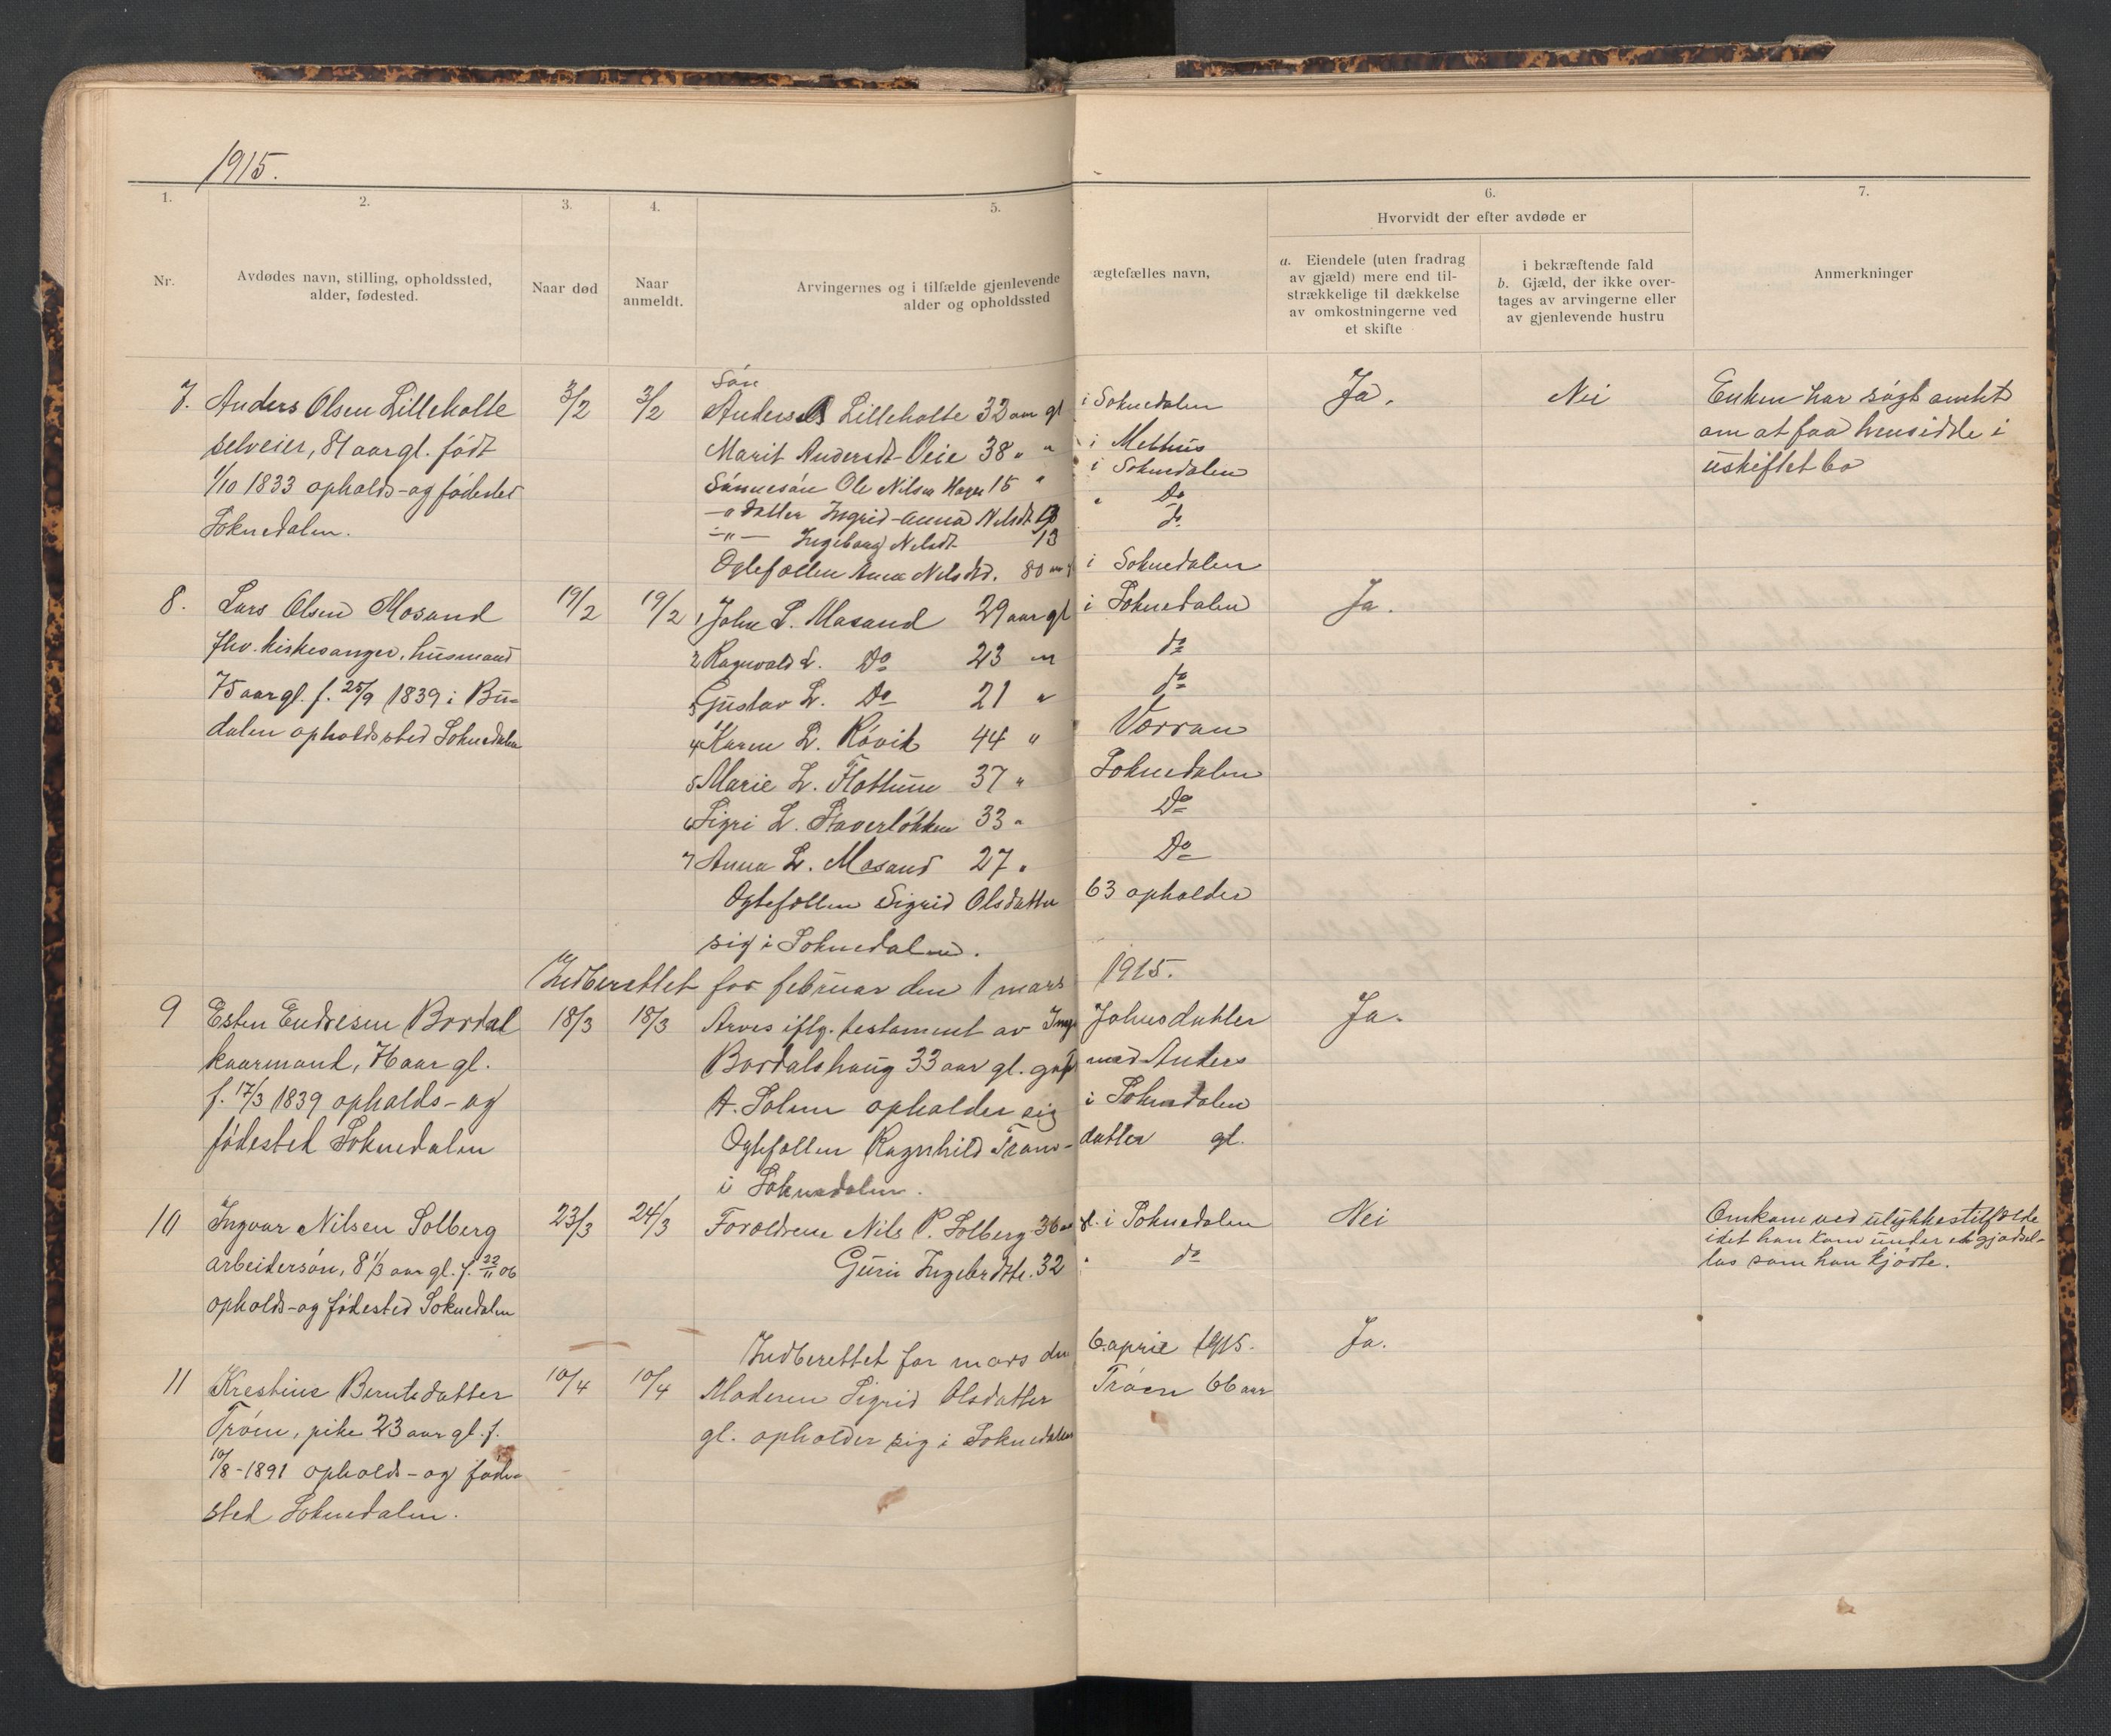 1915.
1. 2. 3. 4. 5. 6. 7.
Hvorvidt der efter avdøde er
Nr.
Avdødes navn, stilling, opholdssted,
alder, fødested.
Naar død
Naar
anmeldt.
Arvingernes og i tilfælde gjenlevende ægtefælles navn,
alder og opholdssted
a. Eiendele (uten fradrag
av gjæld) mere end til-
strækkelige til dækkelse
av omkostningerne ved
et skifte
i bekræftende fald
b. Gjæld, der ikke over-
tages av arvingerne eller
av gjenlevende hustru
Anmerkninger
7. Anders Olsen Lilleholte
selveier, 81 aar gl. født
1/10 1833 opholds-og fødested
Soknedalen.
3/2 3/2
Søn
Anders Lilleholte 32 aar gl i Soknedalen
Marit Andersdt. Veie 38 " " i Melhus
Sønnesøn Ole Nilsen 15 " i Soknedalen
-"datter Ingrid-Anna Nilsdt " Do
-"- Ingeborg Nilsdt. 13 do
Ægtefællen Anna Nilsdtr. 80 aar i Soknedalen
Ja. Nei
Enken har søgt amtet
om at faa hensidde i
uskiftet bo
8. Lars Olsen Mosand
fhv. kirkesanger, husmand
75 aar gl. f. 25/9 1839 i Bu-
dalen opholdssted Soknedalen
19/2 19/2
1 John L. Mosand 29 aar gl i Soknedalen
2 Ragnvald L. Do 23 " do
3 Gustav L. Do 21 " do
4 Karen L. Røvik 44 " Værran
5 Marie L. Flottum 37 " Soknedalen
6 Sigri L. Staverløkken 33 " Do
7 Anna L. Mosand 27 " Do
Ægtefællen Sigrid Olsdatter 63 opholder
sig i Soknedalen.
Ja.
Indberettet for februar den 1 mars 1915.
9 Esten Endresen Bordal
kaarmand, 76 aar gl.
f. 17/3 1839 opholds-og
fødested Soknedalen
18/3 18/3
Arves iflg. testament av Inge Johnsdatter
Bordalshaug 33 aar gl. gift med Anders
A. Solem opholder sig i Soknedalen
Ægtefællen Ragnhild Trons- datter gl.
i Soknedalen.
Ja.
10 Ingvar Nilsen Solberg
arbeidersøn, 8 1/3 aar gl. f. 22/11 06
opholds-og fødested Soknedalen
23/3 24/3
Forældrene Nils P. Solberg 36 aar gl. i Soknedalen
Guru Ingebrdtt. 32 " do
Nei
Omkom ved ulykkestilfælde
idet han kom under et gjødsel-
las som han kjørte.
Indberettet for mars den 6. april 1915. Ja.
11 Krestine Berntsdatter
Trøen, pike 23 aar gl. f.
10/8-1891 opholds-og føde-
sted Soknedalen.
10/4 10/4
Moderen Sigrid Olsdatter Trøen 66 aar
gl. opholder sig i Soknedalen